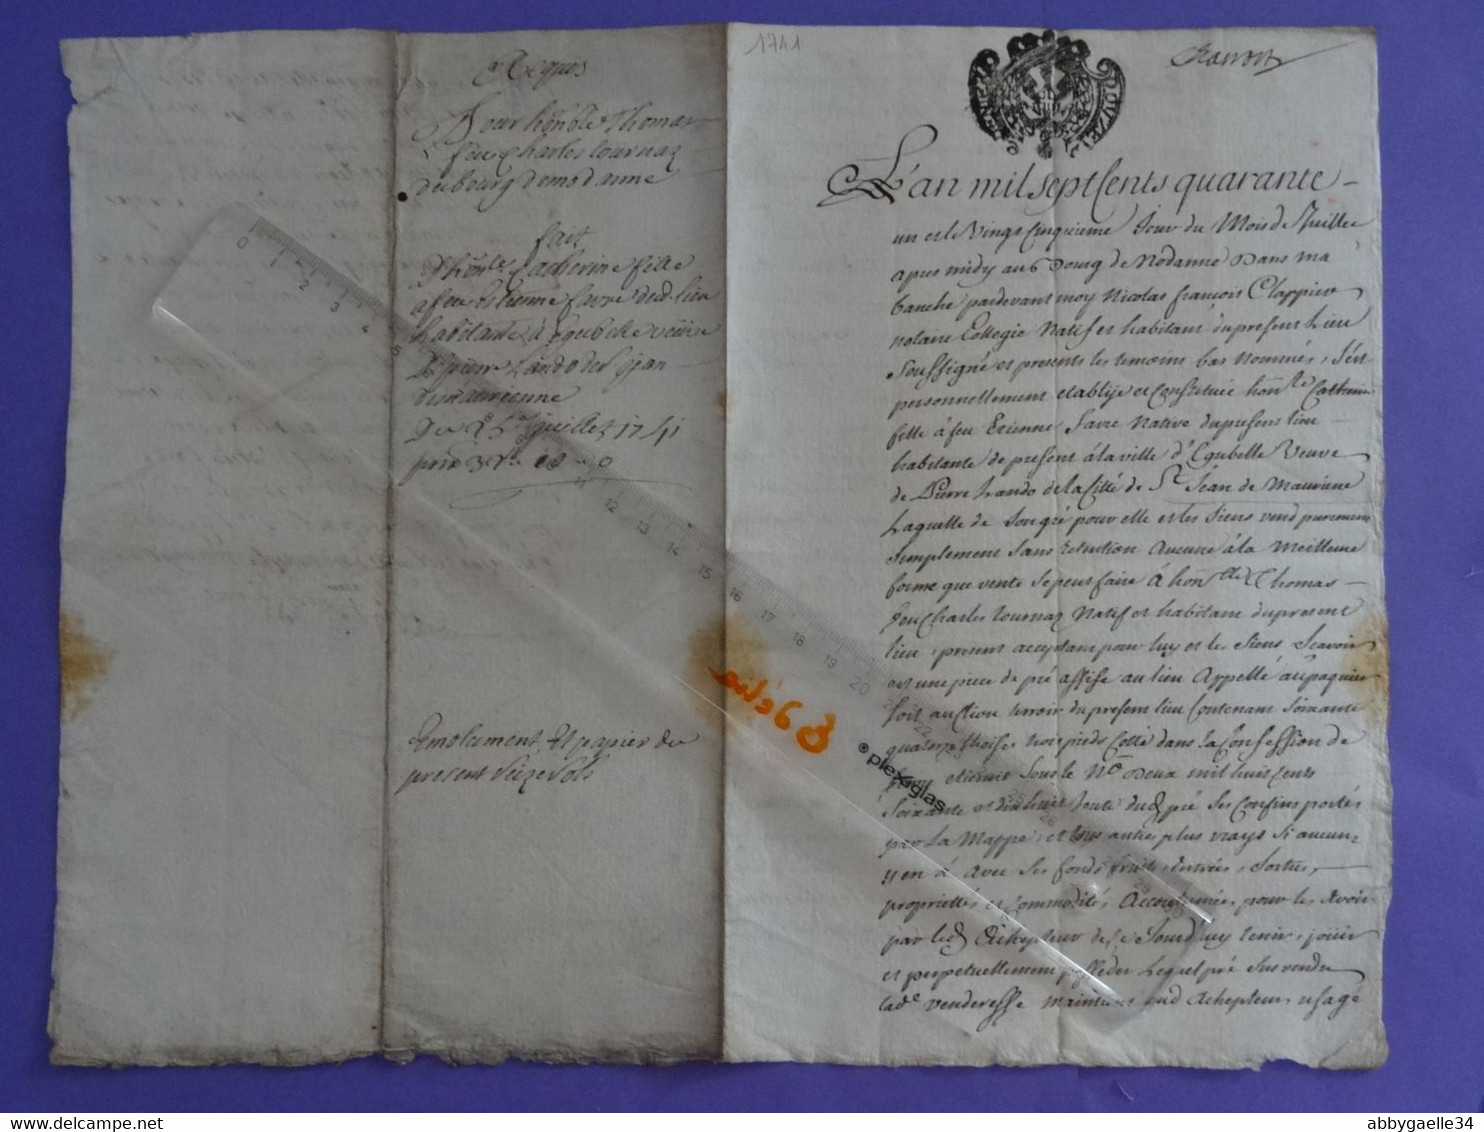 Acquis
Pour honble Thomas
feu Charles tournaz
du bourg de modanne
fait
D'honle Catherine fille
a feu Estienne favre dud. lieu
habitante à Egubelle veüve
De pierre Lando de St jean
De maurienne
Du 25e juillet 1741
prix
Emolument, Et papier du
present Seize sols
1741
L'an mil sept cents quarante
un et le Vingt cinquieme Jour du Mois de Juillet
apres midy au Bourg de Modanne Dans ma
banche pardevant moy Nicolas françois Clappier
notaire Collegié Natif et habitant du present Lieu
Soussigné et presents les temoins bas Nommés, s'est
personnellement etablije et Constituée honle Catherine
fille à feu Etienne Favre Native du present lieu
habitante de present à la ville d'Egubelle Veuve
de Pierre Lando de la Citté de St Jean de Maurienne
Laquelle de Son gré pour elle et les Siens vend purement
Simplement Sans retention Aucune à la Meilleure
forme que vente Se peut faire À honble Thomas
feu Charles Tournaz Natif et habitant du present
lieu, present acceptant pour luy et les Siens Scavoir
est une piece de pré assise au lieu Appellé au paquier
soit au Clion terroir du present lieu Contenant Soixante
quatorze thoises trois pieds Cotté dans la Confession de
Etienne Sous le No Deux mil huit cents
Soixante et dix huit toute dud pré Ses Confins portés
par La Mappe, et tous autres plus vrays Si aucun
y en à Avec Ses fonds fruits, Entrées, Sorties,
proprietés et Commodités Accoutumées, pour les Avoir
par led Achepteur dez ce Jourd'huy tenir, joüir
et perpetuellement posseder Lequel pré Sus vendu
lade Venderesse Maintient aud Achepteur, usagé
0 1 2 3 4 5
11 12 13 14 15 16 17 18 19 20
22 23 25 26 29 30
plexiglas
www.delcampe.net
abbygaelle34